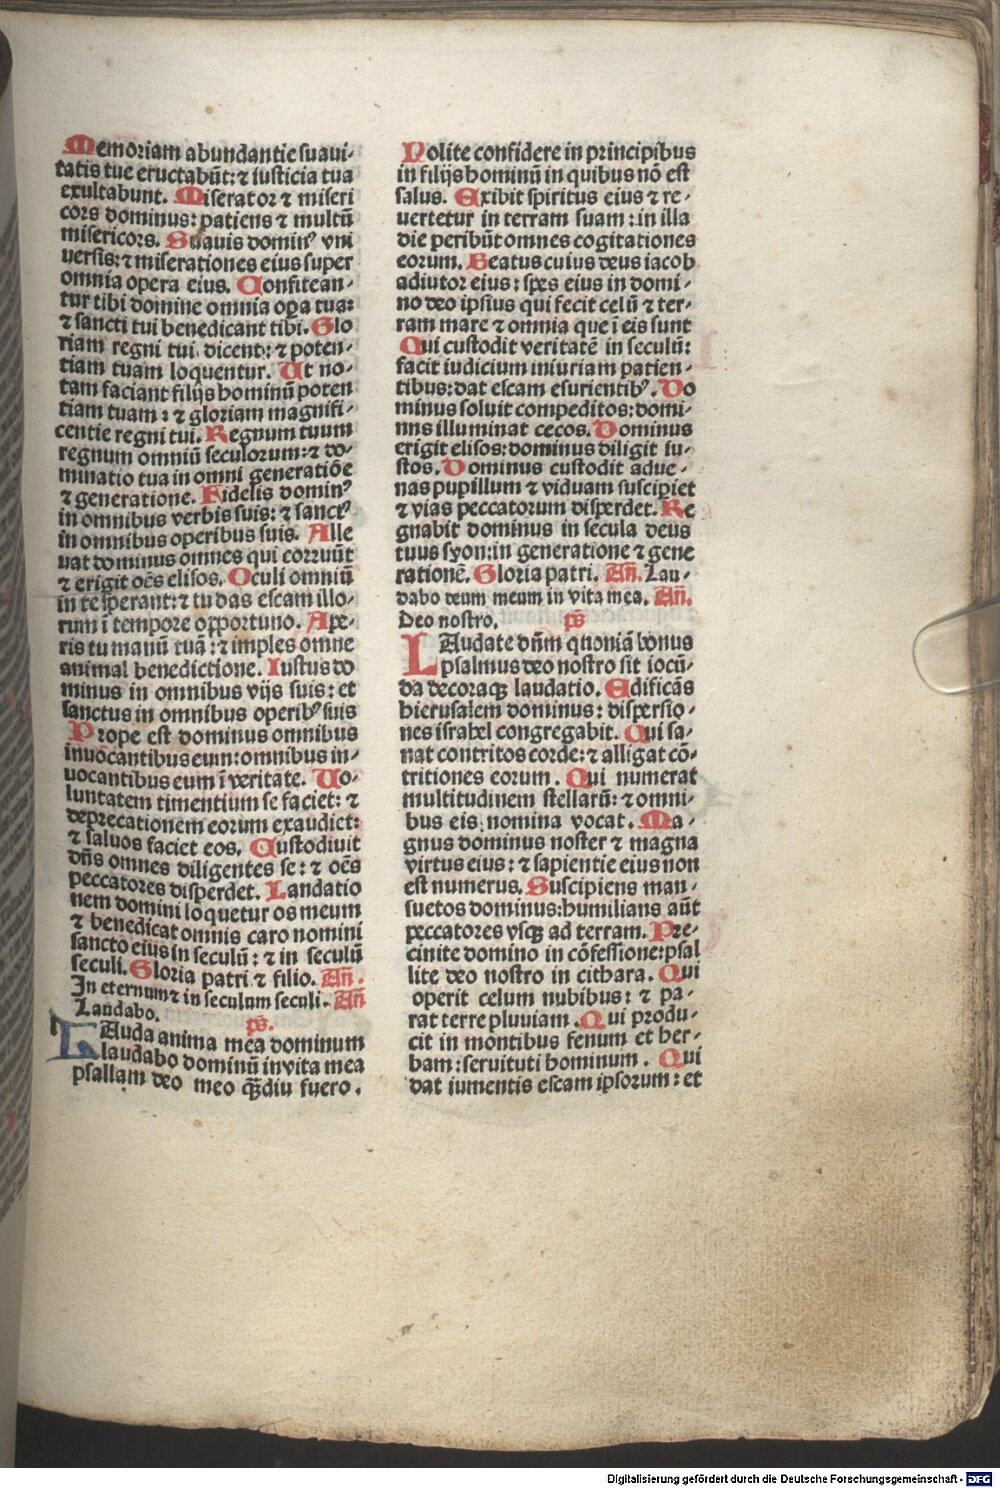 Memoriam abundantie suaui⸗
tatis tue eructabūt: ⁊ iusticia tua
exultabunt. Miserator ⁊ miseri
cors dominus: patiens ⁊ multū
misericors. Suauis dominꝰ vni
uersis: ⁊ miserationes eius super
omnia opera eius. Confitean⸗
tur tibi domine omnia oꝑa tua:
⁊ sancti tui benedicant tibi. Glo
riam regni tui dicent: ⁊ poten⸗
tiam tuam loquentur. Ut no⸗
tam faciant filijs hominū poten
tiam tuam: ⁊ gloriam magnifi⸗
centie regni tui. Regnum tuum
regnum omniū seculorum: ⁊ do⸗
minatio tua in omni generatiōe
⁊ generatione. Fidelis dominꝰ
in omnibus verbis suis: ⁊ sanctꝰ
in omnibus operibus suis. Alle
uat dominus omnes qui corruūt
⁊ erigit oēs elisos. Oculi omniū
in te sperant: ⁊ tu das escam illo⸗
rum ī tempore opportuno. Ape⸗
ris tu manū tuā: ⁊ imples omne
animal benedictione. Iustus do
minus in omnibus vijs suis: et
sanctus in omnibus operibꝰ suis
Prope est dominus omnibus
inuocantibus eum: omnibus in⸗
uocantibus eum ī veritate. Uo⸗
luntatem timentium se faciet: ⁊
deprecationem eorum exaudiet:
⁊ saluos faciet eos. Custodiuit
dn̄s omnes diligentes se: ⁊ oēs
peccatores disperdet. Laudatio
nem domini loquetur os meum
⁊ benedicat omnis caro nomini
sancto eius in seculū: ⁊ in seculū
seculi. Gloria patri ⁊ filio. An̄.
In eternum ⁊ in seculum seculi. An̄
Laudabo. ps̄.
LAuda anima mea dominum
laudabo dominū in vita mea
psallam deo meo qȝdiu fuero.
Nolite confidere in principibus
in filijs hominū in quibus nō est
salus. Exibit spiritus eius ⁊ re⸗
uertetur in terram suam: in illa
die peribūt omnes cogitationes
eorum. Beatus cuius deus iacob
adiutor eius: spes eius in domi⸗
no deo ipsius qui fecit celū ⁊ ter⸗
ram mare ⁊ omnia que ī eis sunt
Qui custodit veritatē in seculū:
facit iudicium iniuriam patien⸗
tibus: dat escam esurientibꝰ. Do
minus soluit compeditos: domi⸗
nus illuminat cecos. Dominus
erigit elisos: dominus diligit iu⸗
stos. Dominus custodit adue⸗
nas pupillum ⁊ viduam suscipiet
⁊ vias peccatorum disperdet. Re
gnabit dominus in secula deus
tuus syon: in generatione ⁊ gene
rationē. Gloria patri. An̄. Lau⸗
dabo deum meum in vita mea. An̄.
Deo nostro. ps̄
LAudate dn̄m quoniā bonus
psalmus deo nostro sit iocū⸗
da decoraqȝ laudatio. Edificās
hierusalem dominus: dispersio⸗
nes israhel congregabit. Qui sa⸗
nat contritos corde: ⁊ alligat cō⸗
tritiones eorum. Qui numerat
multitudinem stellarū: ⁊ omni⸗
bus eis nomina vocat. Ma⸗
gnus dominus noster ⁊ magna
virtus eius: ⁊ sapientie eius non
est numerus. Suscipiens man⸗
suetos dominus: humilians aūt
peccatores vsqȝ ad terram. Pre⸗
cinite domino in cōfessione: psal
lite deo nostro in cithara. Qui
operit celum nubibus: ⁊ pa⸗
rat terre pluuiam. Qui produ⸗
cit in montibus fenum et her⸗
bam: seruituti hominum. Qui
dat iumentis escam ipsorum: et
Digitalisierung gefördert durch die Deutsche Forschungsgemeinschaft - DFG